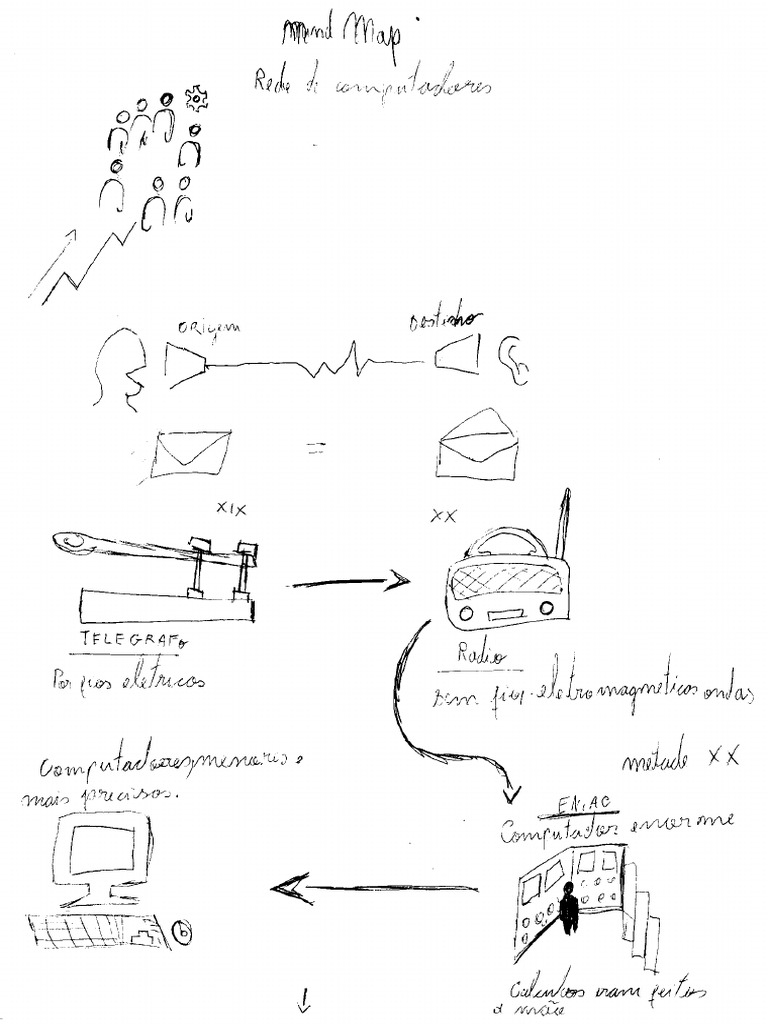 Mind Map
Rede de computadores
ORIGEM
Destinho
=
XIX
XX
TELEGRAFo
Por fios eletricos
Radio
sem fios. eletromagneticas ondas
Computadores menoris e
mais precisos.
metade XX
ENIAC
Computador enorme
Calculos eram feitos
a mão